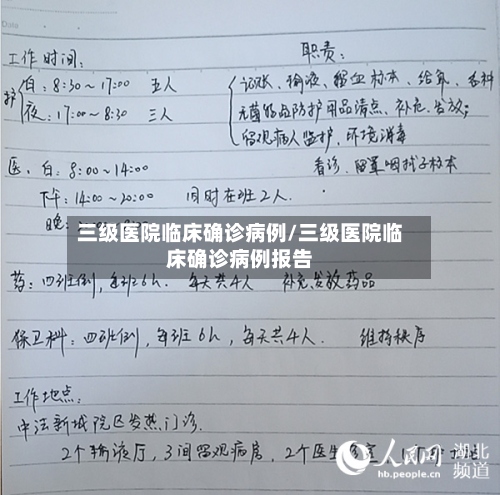 Date
工作时间：
职责：
护 白：8:30～17:00 五人
夜：17:00～8:30 三人
记账、输液、留血标本、给氧、各种
无菌物品防护用品清点、补充、发放；
留观病人监护、环境消毒
医、白：8:00～14:00
看诊、留鼻咽拭子标本
下午：14:00～20:00 同时在班2人.
晚：
三级医院临床确诊病例/三级医院临
床确诊病例报告
药：四班倒，每班6h. 每天共4人 补充、发放药品
保卫科：四班倒，每班6h，每天共4人. 维持秩序
工作地点：
中法新城院区发热门诊.
2个输液厅，3间留观病房，2个医生
人民网 湖北
频道
hb.people.cn